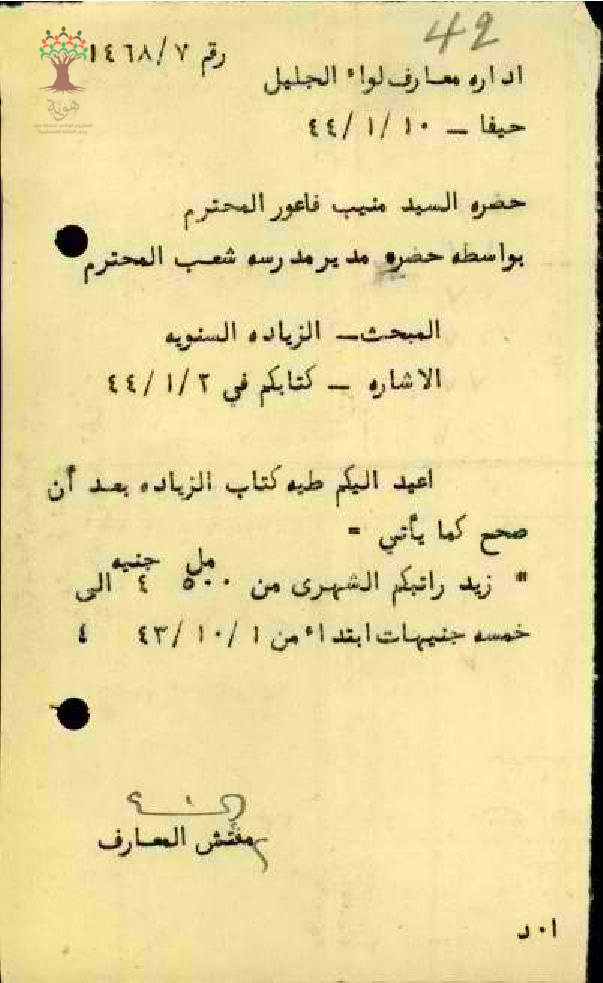 42
رقم ١٤٦٨/٧
اداره معارف لواء الجليل
حيفا – ٤٤/١/١٠
هوية
حضره السيد منيب فاعور المحترم
بواسطه حضره مدير مدرسه شعب المحترم
المبحث – الزياده السنويه
الاشاره – كتابكم في ٤٤/١/٢
اعيد اليكم طيه كتاب الزياده بعد أن
صحح كما يأتي =
مل جنيه
" زيد راتبكم الشهرى من ٥٠٠ ٤ الى
خمسه جنيهات ابتداء من ٤٣/١٠/١ ؛
مفتش المعارف
ا٠د